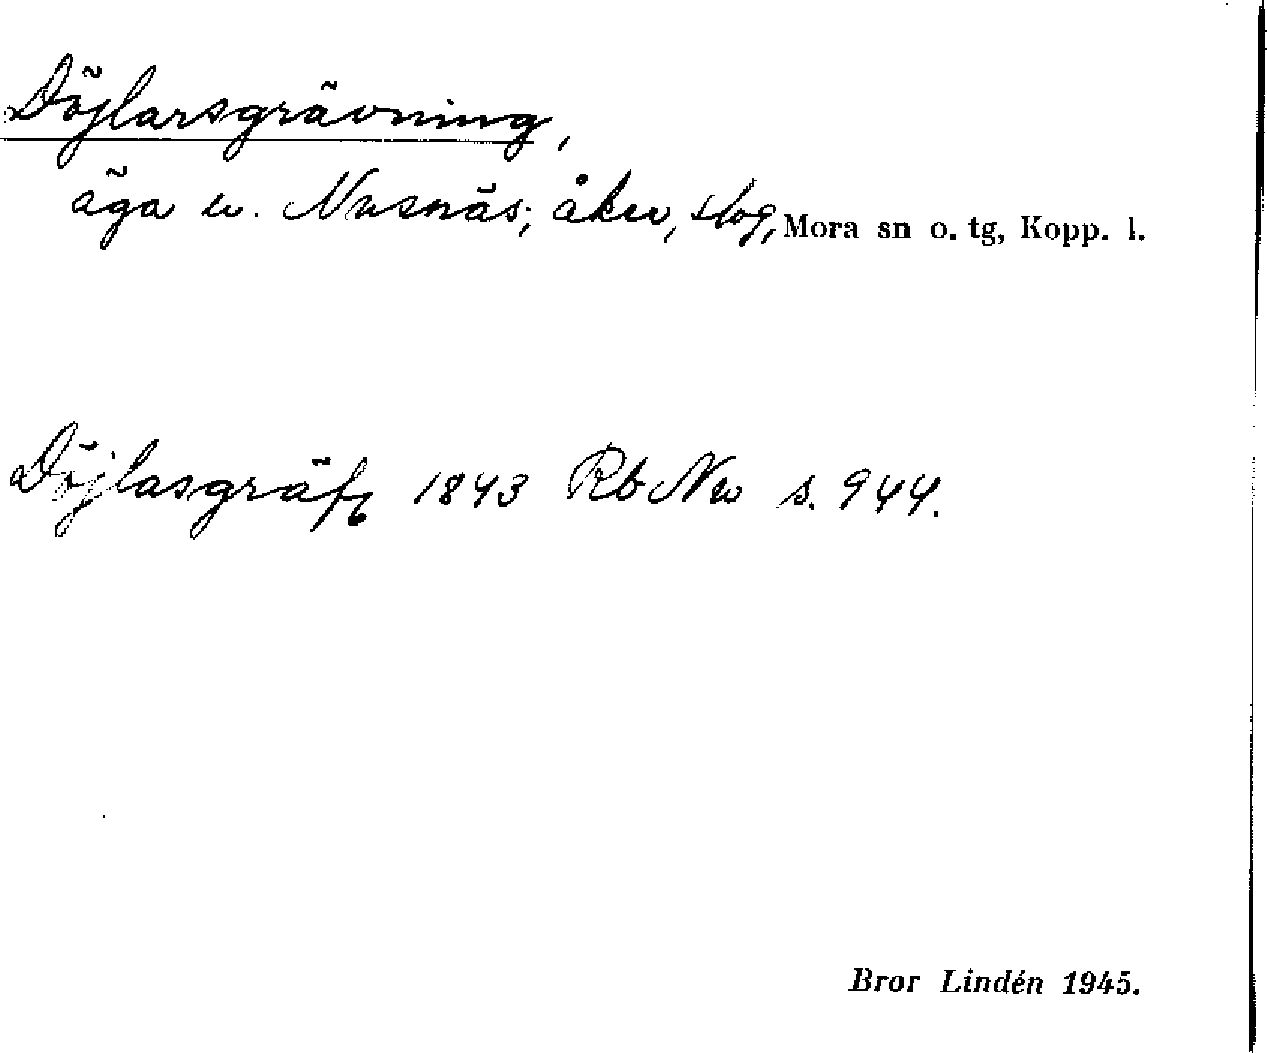 Döjlarsgrävning,
äga u. Nusnäs; åker, slog, Mora sn o. tg, Kopp. l.
Döjlasgräfg 1843 Rb Nu s. 944.
Bror Lindén 1945.